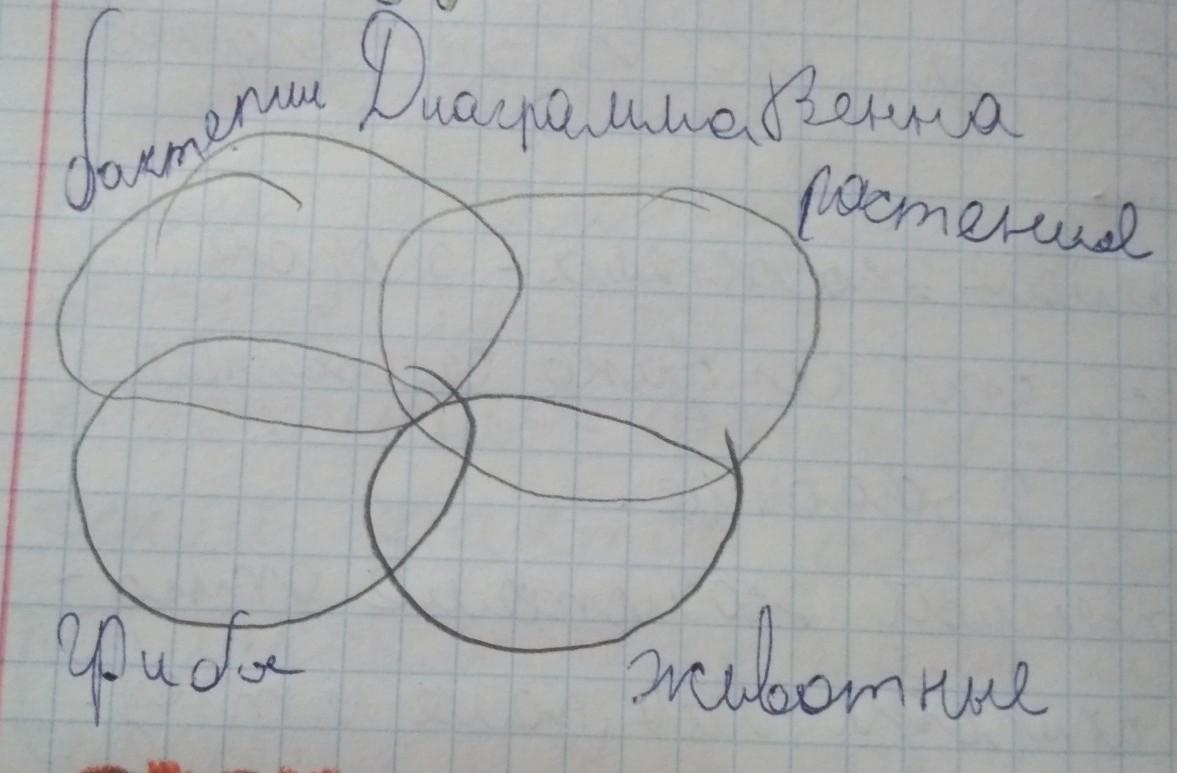 бактерии Диаграмма Венна
растения
грибы
животные